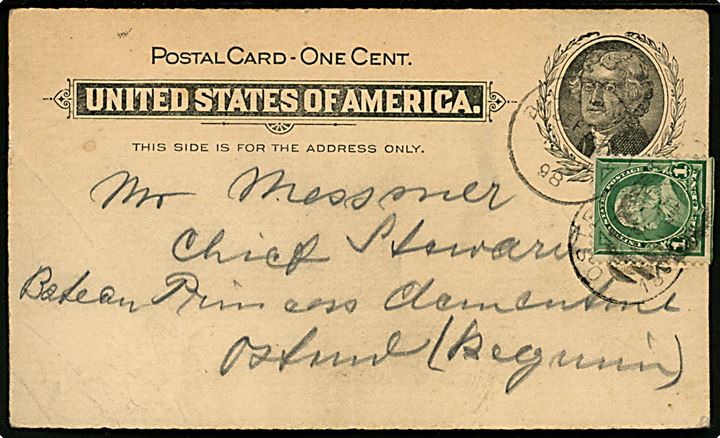 POSTAL CARD - ONE CENT.
UNITED STATES OF AMERICA.
THIS SIDE IS FOR THE ADDRESS ONLY.
Mr Messmer
Chief Steward
Bateau Princess Clementine
Ostend (Begium)
98
OSTE